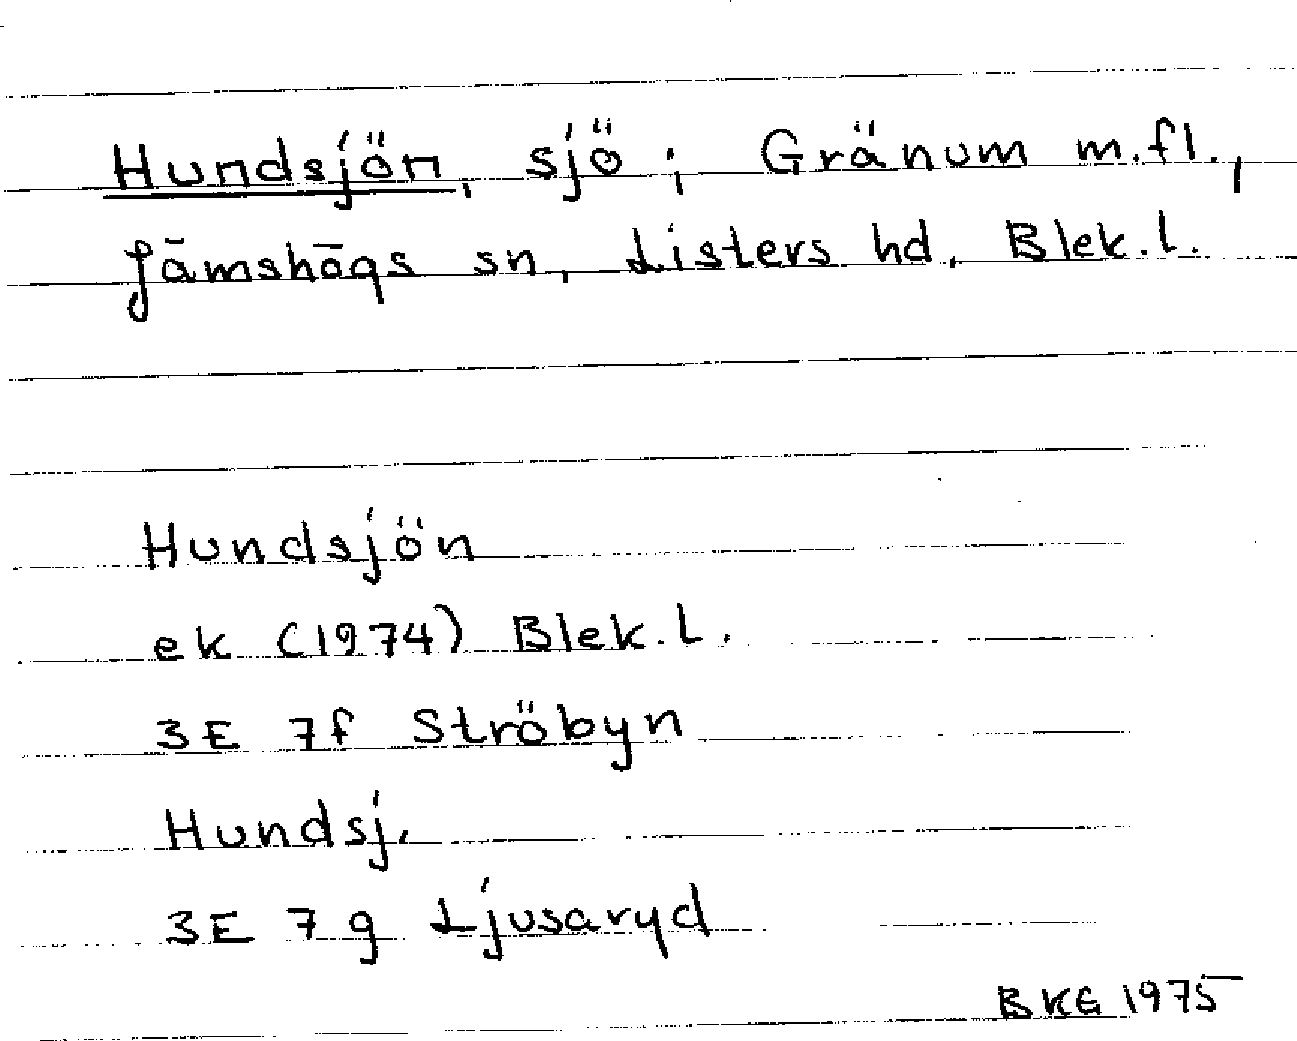 Hundsjön, sjö; Gränum m.fl.,
Jämshögs sn, Listers hd, Blek.l.
Hundsjön
ek (1974) Blek.l.
3E 7f Ströbyn
Hundsj.
3E 7g Ljusaryd
BKG 1975